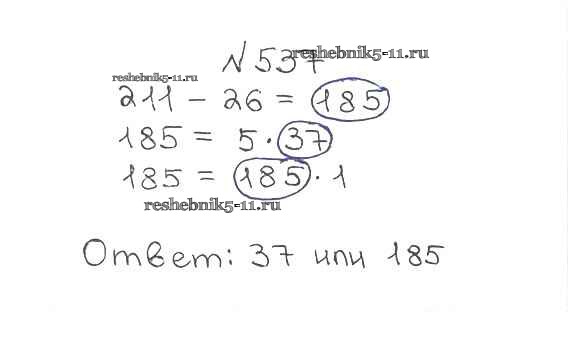 № 537
reshebnik5-11.ru
reshebnik5-11.ru
211 - 26 = 185
185 = 5 · 37
185 = 185 · 1
reshebnik5-11.ru
Ответ: 37 или 185